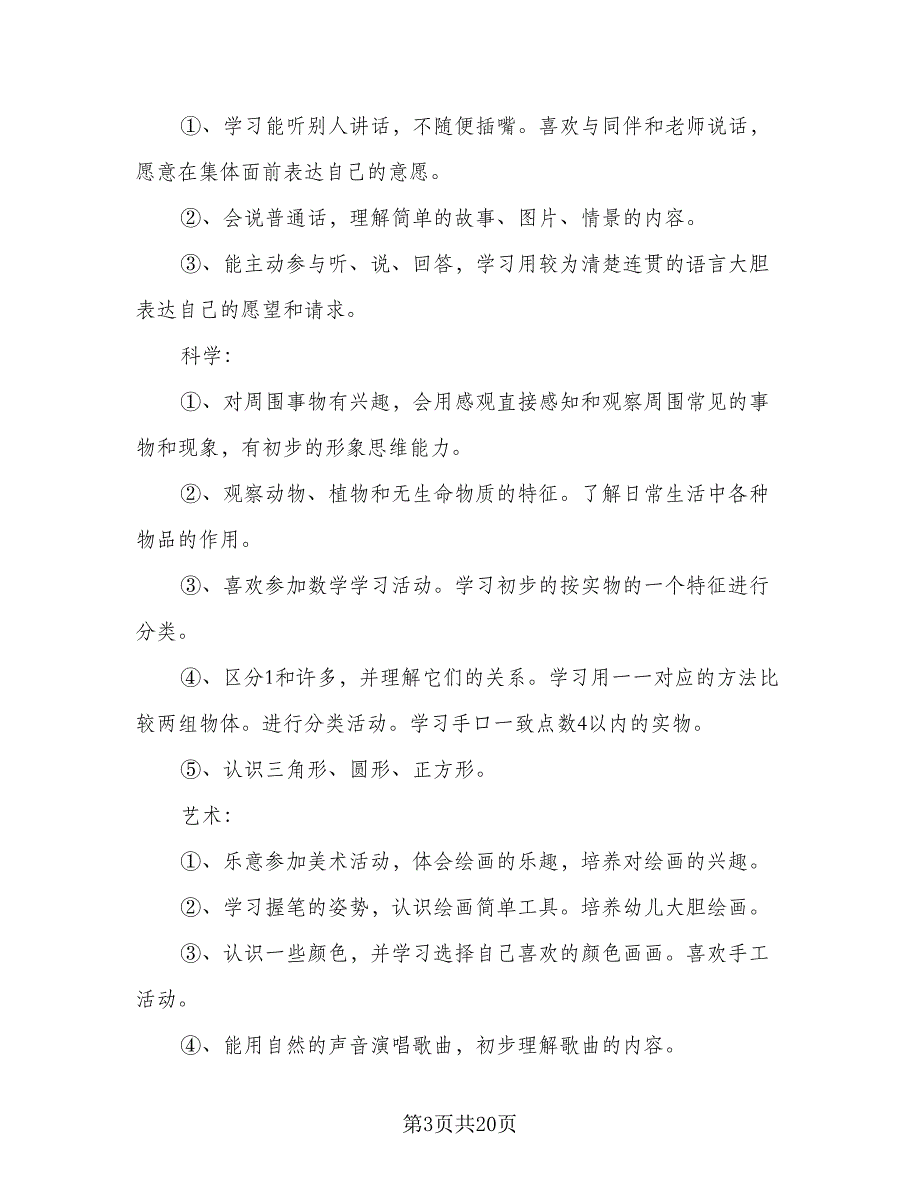 ①、学习能听别人讲话，不随便插嘴。喜欢与同伴和老师说话，
愿意在集体面前表达自己的意愿。
②、会说普通话，理解简单的故事、图片、情景的内容。
③、能主动参与听、说、回答，学习用较为清楚连贯的语言大胆
表达自己的愿望和请求。
科学：
①、对周围事物有兴趣，会用感观直接感知和观察周围常见的事
物和现象，有初步的形象思维能力。
②、观察动物、植物和无生命物质的特征。了解日常生活中各种
物品的作用。
③、喜欢参加数学学习活动。学习初步的按实物的一个特征进行
分类。
④、区分1和许多，并理解它们的关系。学习用一一对应的方法比
较两组物体。进行分类活动。学习手口一致点数4以内的实物。
⑤、认识三角形、圆形、正方形。
艺术：
①、乐意参加美术活动，体会绘画的乐趣，培养对绘画的兴趣。
②、学习握笔的姿势，认识绘画简单工具。培养幼儿大胆绘画。
③、认识一些颜色，并学习选择自己喜欢的颜色画画。喜欢手工
活动。
④、能用自然的声音演唱歌曲，初步理解歌曲的内容。
第3页共20页